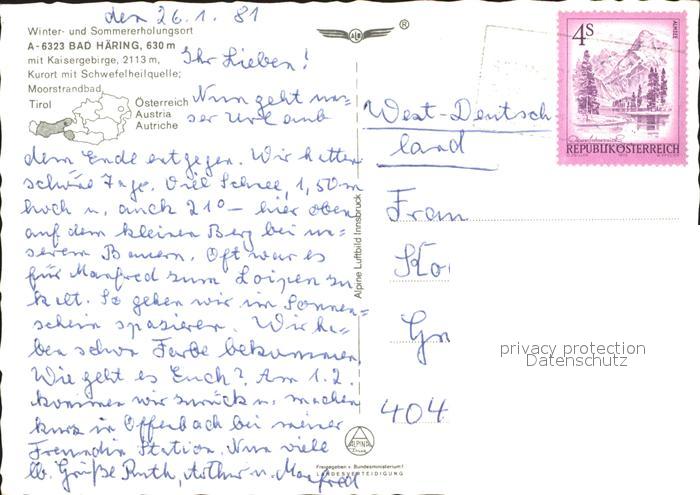 den 26.1.81
Winter- und Sommererholungsort
A-6323 BAD HÄRING, 630 m
mit Kaisergebirge, 2113 m,
Kurort mit Schwefelheilquelle;
Moorstrandbad,
Tirol
Österreich
Austria
Autriche
Ihr Lieben!
Nun geht un=
ser Urlaub
dem Ende entgegen. Wir hatten
schöne Tage. Viel Schnee, 1,50 m
hoch u. auch 21°– hier oben
auf dem kleinen Berg bei un=
serem Bauern. Oft war es
für Manfred zum Loipen zu
kalt. So gehen wir im Sonnen=
schein spazieren. Wir ha=
ben schon Farbe bekommen.
Wie geht es Euch? Am 1.2.
kommen wir zurück u. machen
kurz in Offenbach bei meiner
Freundin Station. Nun viele
lb. Grüße Ruth, Arthur u. Manfred
Alpine Luftbild Innsbruck
®
ALPINE
Freigegeben v. Bundesministerium f.
LANDESVERTEIDIGUNG
4S
ALMSEE
REPUBLIK ÖSTERREICH
West-Deutsch
land
Frau
Gn
404
privacy protection
Datenschutz